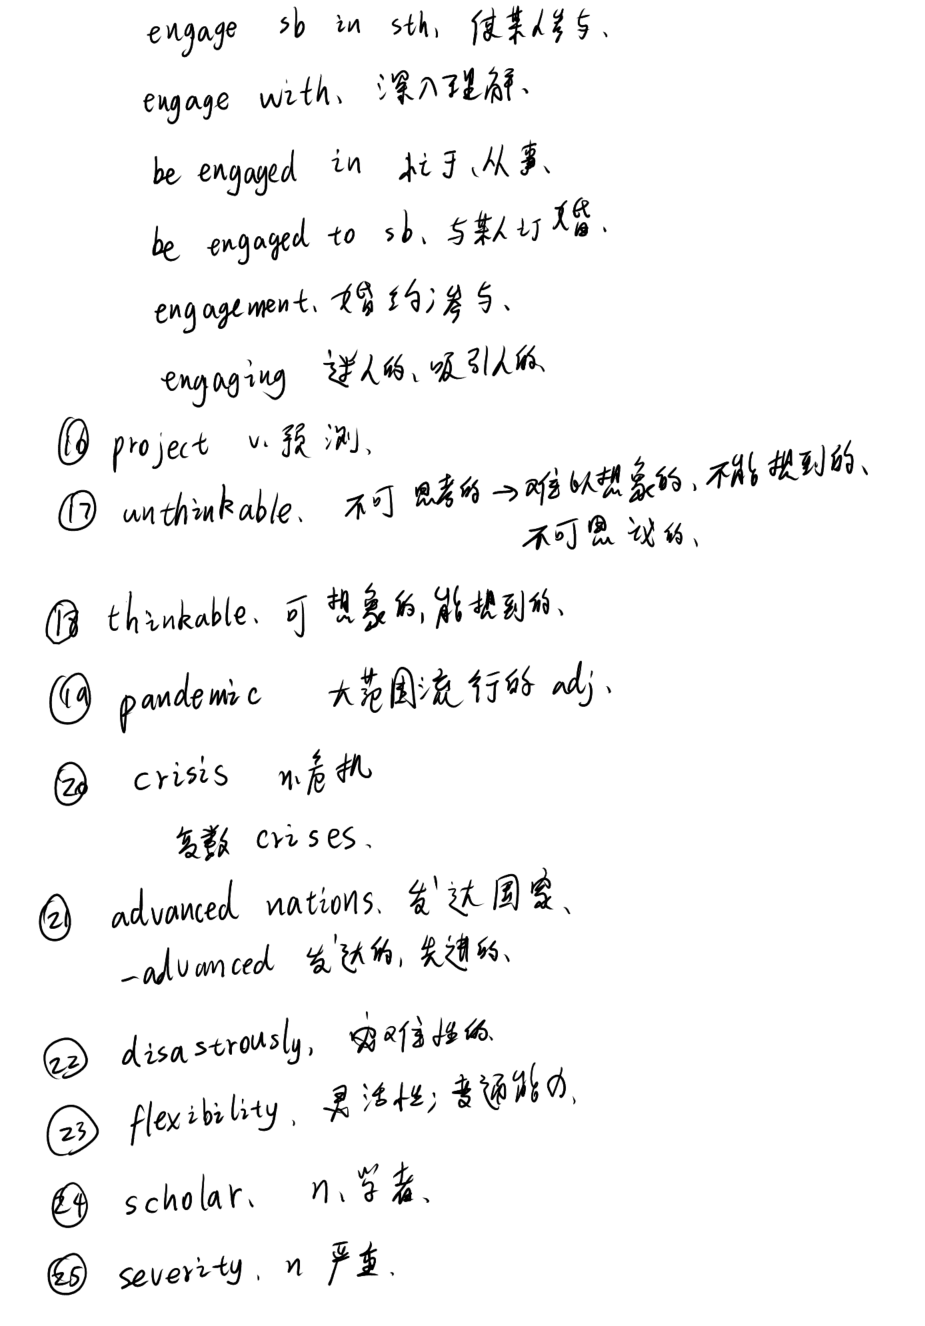 engage sb in sth, 使某人参与、
engage with、深入理解、
be engaged in 忙于、从事、
be engaged to sb、与某人订婚、
engagement、婚约;参与、
engaging 迷人的、吸引人的、
⑯ project v. 预测、
⑰ unthinkable、不可思考的→难以想象的,不能想到的、
不可思议的、
⑱ thinkable、可想象的,能想到的、
⑲ pandemic 大范围流行的 adj、
⑳ crisis n.危机
复数 crises、
㉑ advanced nations、发达国家、
-advanced 发达的,先进的、
㉒ disastrously, 灾难性的、
㉓ flexibility、灵活性;变通能力、
㉔ scholar、n、学者、
㉕ severity、n 严重、